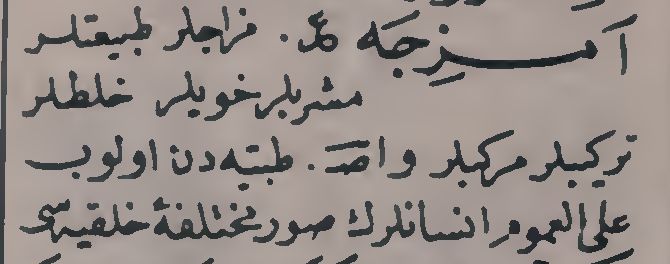 اَمـــزِجَه عر. مزاجلر طبیعتلر
مشربلر خویلر خلطلر
ترکیبلر مرکبلر واصـ. طبیه‌دن اولوب
علی العموم انسانلرك صور مختلفۀ خلقیه‌سی